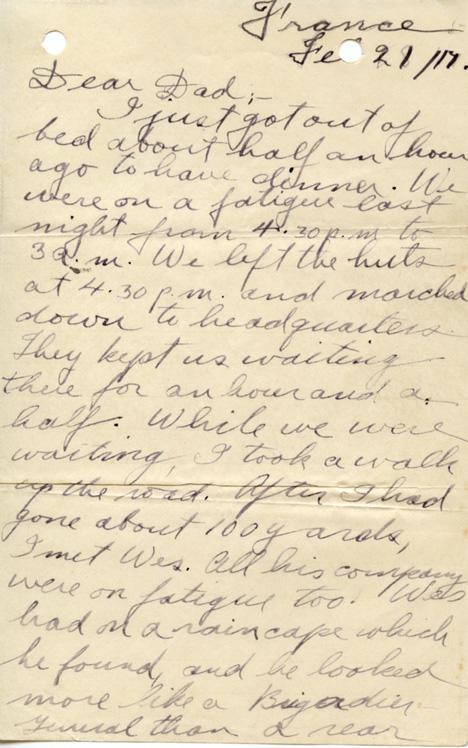 France
Feb 21/17.
Dear Dad;-
I just got out of
bed about half an hour
ago to have dinner. We
were on a fatigue last
night from 4.30 p.m. to
3 a.m. We left the huts
at 4.30 p.m. and marched
down to headquarters.
They kept us waiting
there for an hour and a
half. While we were
waiting, I took a walk
up the road. After I had
gone about 100 yards,
I met Wes. All his company
were on fatigue too. Wes
had on a rain cape which
he found, and he looked
more like a Brigadier
General than a rear